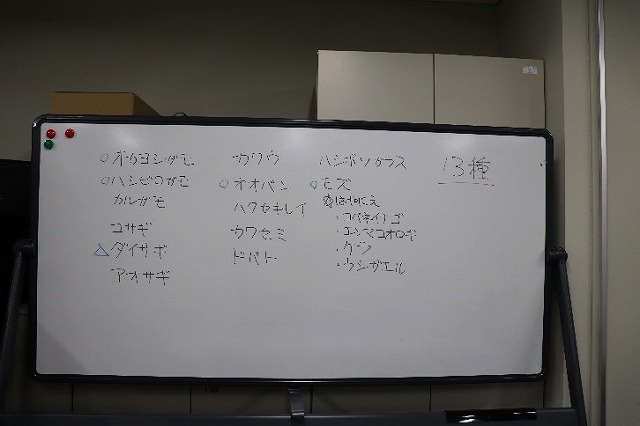 ○オカヨシガモ
○ハシビロガモ
カルガモ
コサギ
△ダイサギ
アオサギ
カワウ
○オオバン
ハクセキレイ
カワセミ
ドバト
ハシボソガラス
○モズ
はやにえ
・コバネイナゴ
・エンマコオロギ
・ケラ
・ウシガエル
13種